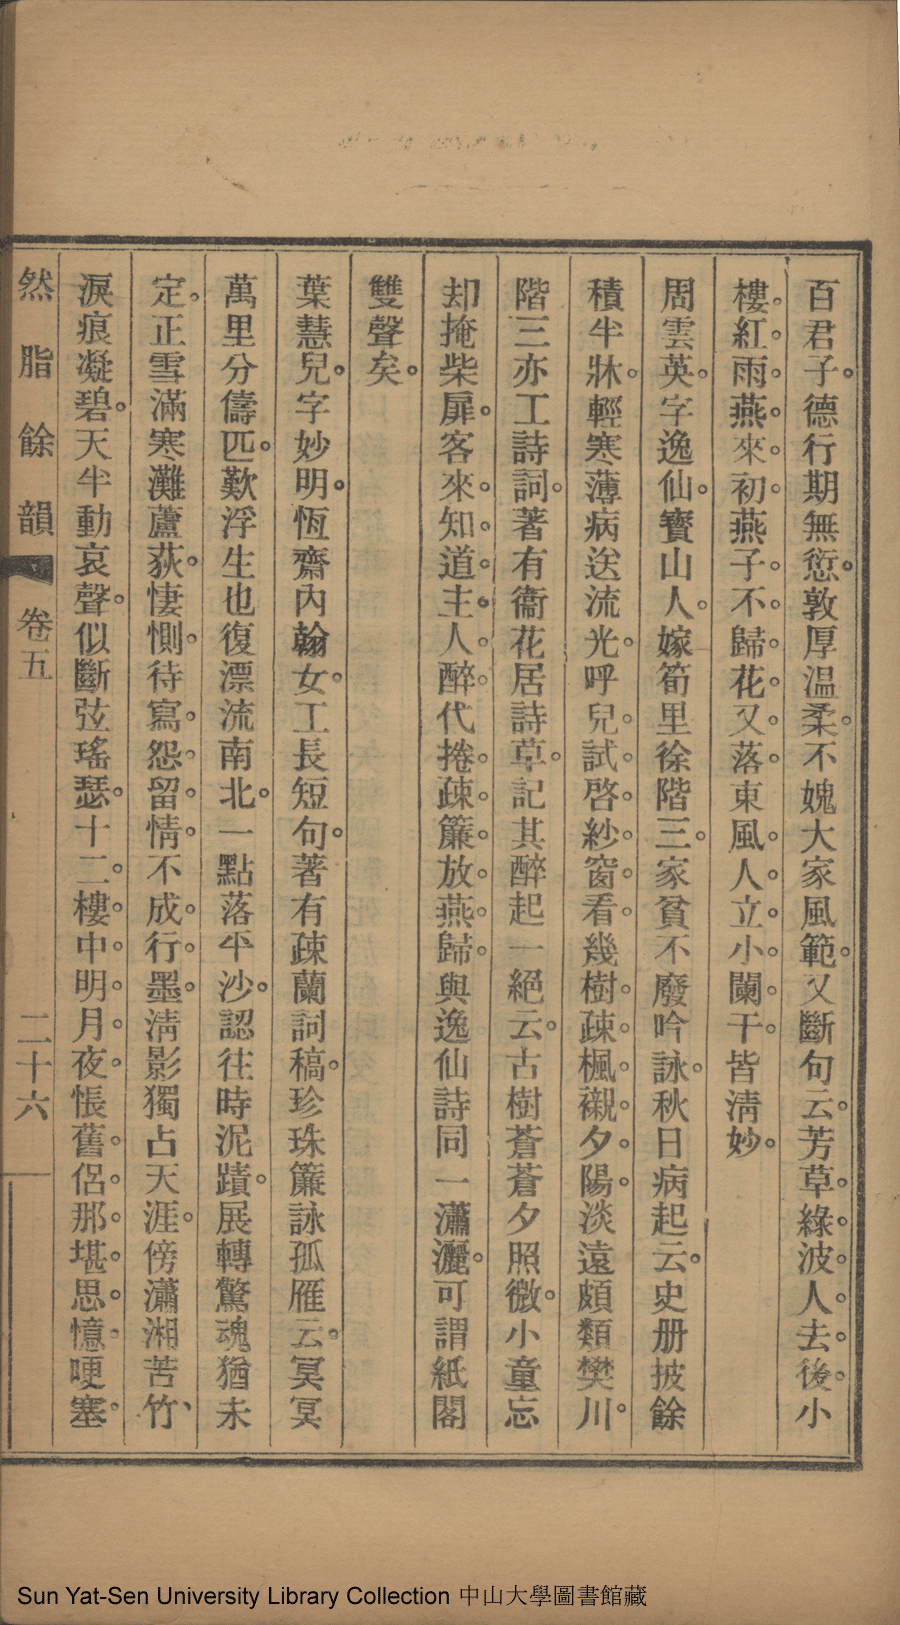 百君子。德行期無愆。敦厚温柔。不媿大家風範。又斷句云。芳草。綠。波。人。去。後。小
樓。紅。雨。燕。來。初。燕子。不。歸。花。又。落。東風。人。立。小。闌。干。皆淸妙。
周雲英。字逸仙。寶山人。嫁筍里徐階三。家貧不廢吟詠。秋日病起云。史册披餘
積半牀。輕寒薄病送流光。呼兒。試。啓。紗。窗。看。幾樹。疎。楓。襯。夕。陽。淡遠頗類樊川。
階三亦工詩詞。著有衞花居詩草。記其醉起一絕云。古樹蒼蒼夕照微。小童忘
却掩柴扉。客來。知。道。主。人。醉。代捲。疎。簾。放。燕。歸。與逸仙詩同一瀟灑。可謂紙閣
雙聲矣。
葉慧兒。字妙明。恆齋內翰女。工長短句。著有疎蘭詞稿。珍珠簾詠孤雁云。冥冥
萬里分儔匹。歎浮生也復漂流南北。一點落平沙。認往時泥蹟。展轉驚魂猶未
定。正雪滿寒灘蘆荻。悽惻。待寫。怨。留。情。不成。行。墨。淸影獨占天涯。傍瀟湘苦竹、
淚痕凝碧。天半動哀聲。似斷弦瑤瑟。十二。樓。中。明。月。夜。悵舊。侶。那。堪。思。憶。哽塞。
然脂餘韻 卷五 二十六
Sun Yat-Sen University Library Collection 中山大學圖書館藏